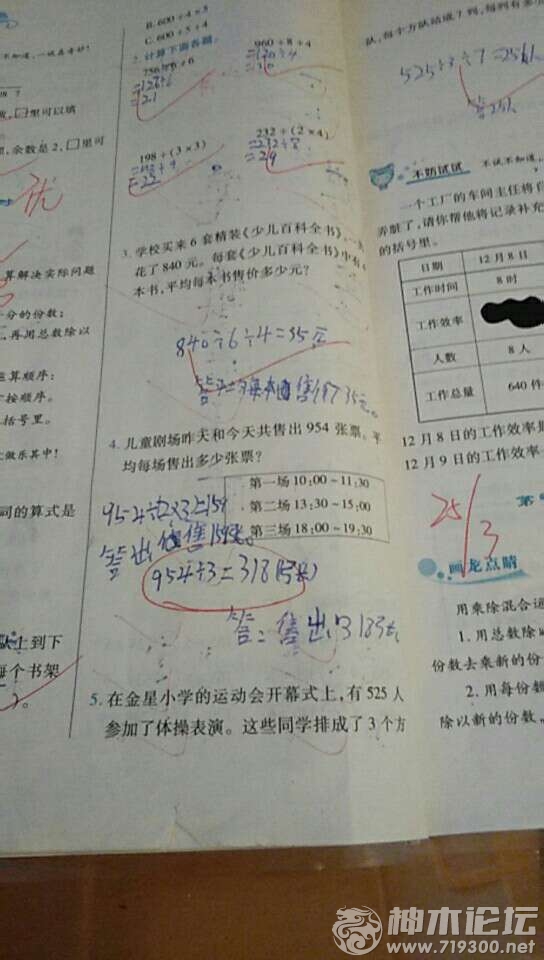 B. 600÷4×5
C. 600÷5÷4
2. 计算下面各题。
756÷6÷6
=126÷6
=21
960÷8÷4
=120÷4
=30
198÷(3×3)
=198÷9
=22
232÷(2×4)
=232÷8
=29
3. 学校买来6套精装《少儿百科全书》,一共
花了840元。每套《少儿百科全书》中有4
本书,平均每本书售价多少元?
840÷6÷4=35元
4. 儿童剧场昨天和今天共售出954张票。平
均每场售出多少张票?
第一场 10:00~11:30
第二场 13:30~15:00
第三场 18:00~19:30
954÷2×3=159
954÷3=318(张)
答:售出318张
5. 在金星小学的运动会开幕式上,有525人
参加了体操表演。这些同学排成了3个方
不知道,一试真奇妙!
□里可以填
余数是2,□里可
优
算解决实际问题
分的份数;
再用总数除以
运算顺序:
按顺序。
括号里。
做乐其中!
同的算式是
上到下
每个书架
队,每个方队站成7列,每列有多少
525÷3÷7=25(人)
不妨试试
一个工厂的车间主任将
弄脏了,请你帮他将记录补充
的括号里。
日期 12月8日
工作时间 8时
工作效率
人数 8人
工作总量 640件
12月8日的工作效率是
12月9日的工作效率
25/3
画龙点睛
用乘除混合运
1. 用总数除以
份数去乘新的份
2. 用每份数
除以新的份数。
神木论坛
www.719300.net